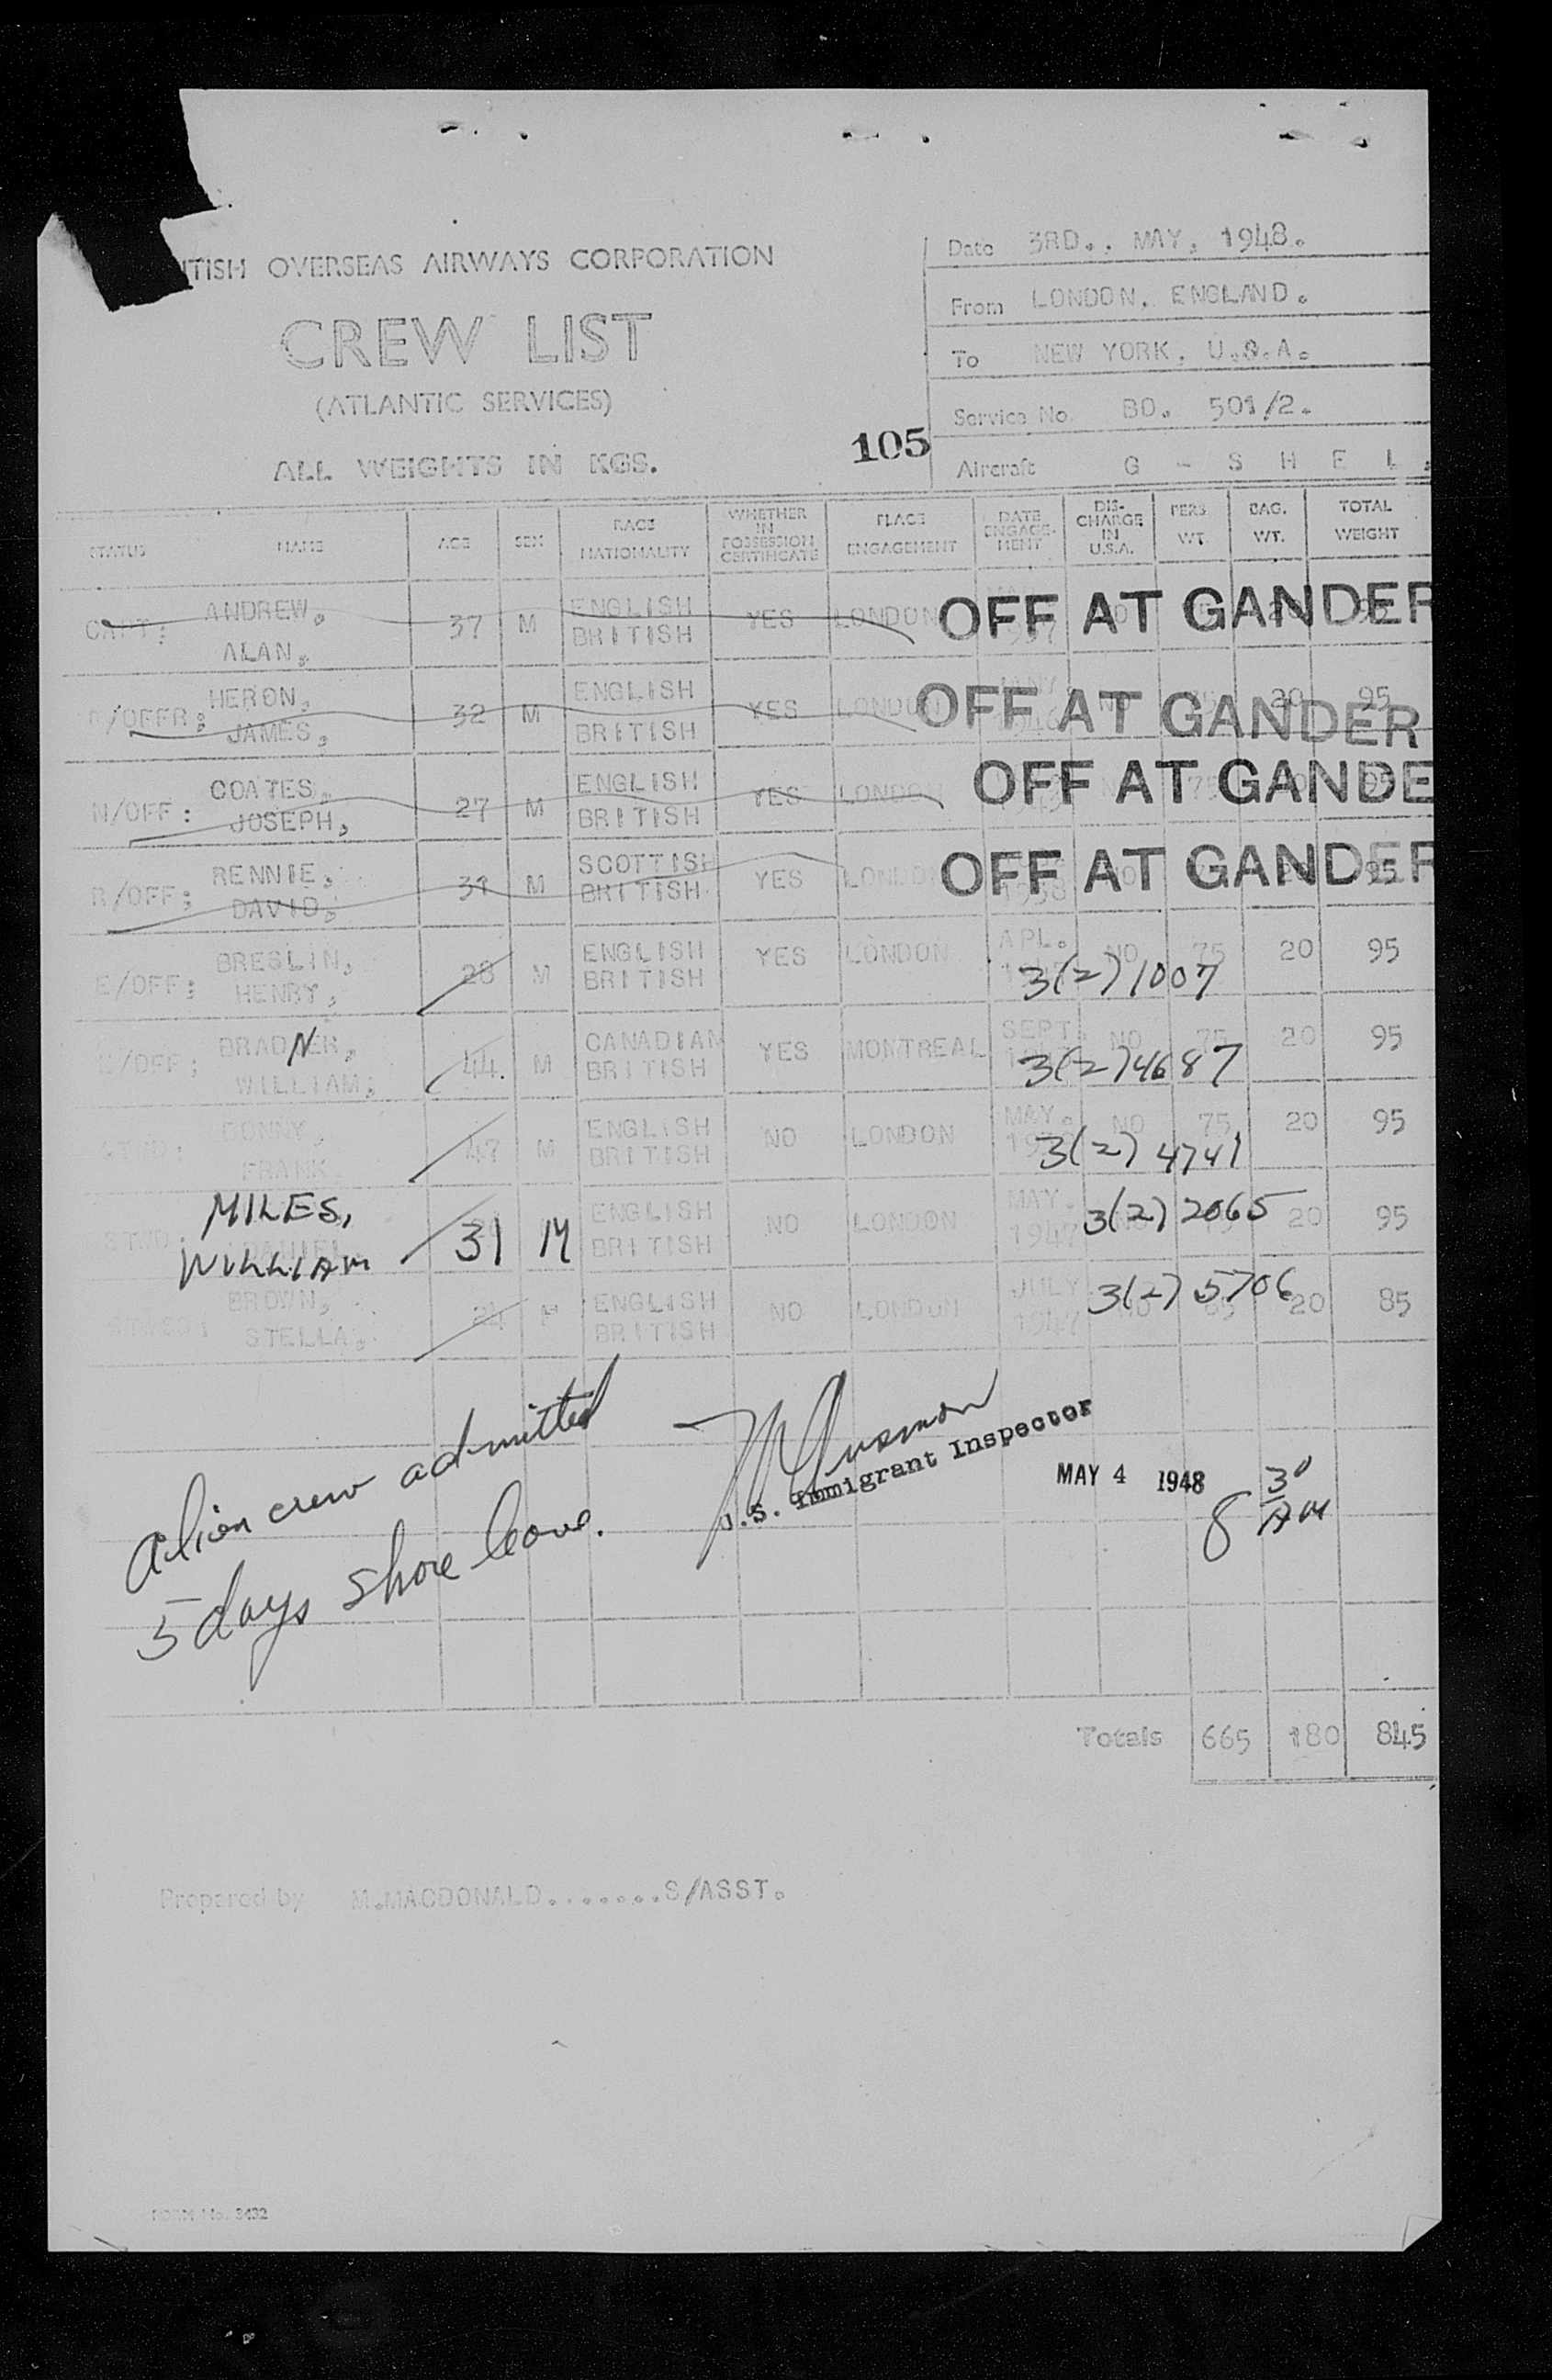 ITISH OVERSEAS AIRWAYS CORPORATION
CREW LIST
(ATLANTIC SERVICES)
ALL WEIGHTS IN KGS.
105
Date 3RD.. MAY, 1948.
From LONDON. ENGLAND.
To NEW YORK, U.S.A.
Service No. BO. 501/2.
Aircraft G - S H E L.
STATUS NAME AGE SEX RACE NATIONALITY WHETHER IN POSSESSION CERTIFICATE PLACE ENGAGEMENT DATE ENGAGE-MENT DIS-CHARGE IN U.S.A. PERS. WT. BAG. WT. TOTAL WEIGHT
CAPT: ANDREW. 37 M ENGLISH YES LONDON OFF AT GANDER
ALAN. BRITISH
/OFFR: HERON, 32 M ENGLISH YES LONDON OFF AT GANDER 20 95
JAMES, BRITISH
N/OFF: COATES, 27 M ENGLISH YES LONDON OFF AT GANDE 95
JOSEPH, BRITISH
R/OFF; RENNIE, 31 M SCOTTISH YES LONDON OFF AT GANDER 95
DAVID; BRITISH 1938
E/OFF: BRESLIN, 28 M ENGLISH YES LONDON APL. NO 75 20 95
HENRY, BRITISH 3(2) 1007
/OFF; BRADNER, 44. M CANADIAN YES MONTREAL SEPT. NO 75 20 95
WILLIAM; BRITISH 3(2) 4687
BONNY, 47 M ENGLISH NO LONDON MAY. NO 75 20 95
FRANK BRITISH 3(2) 4741
STWD. MILES, 31 M ENGLISH NO LONDON MAY. 3(2) 2065 20 95
WILLIAM DANIEL. BRITISH 1947
BROWN, 24 ENGLISH NO LONDON JULY 3(2) 5706 NO 65 20 85
STELLA. BRITISH 1947
Alien crew admitted
5 days shore leave.
U.S. Immigrant Inspector
MAY 4 1948 8 30 AM
Totals 665 180 845
Prepared by M.MACDONALD.......S/ASST.
FORM No. 3432